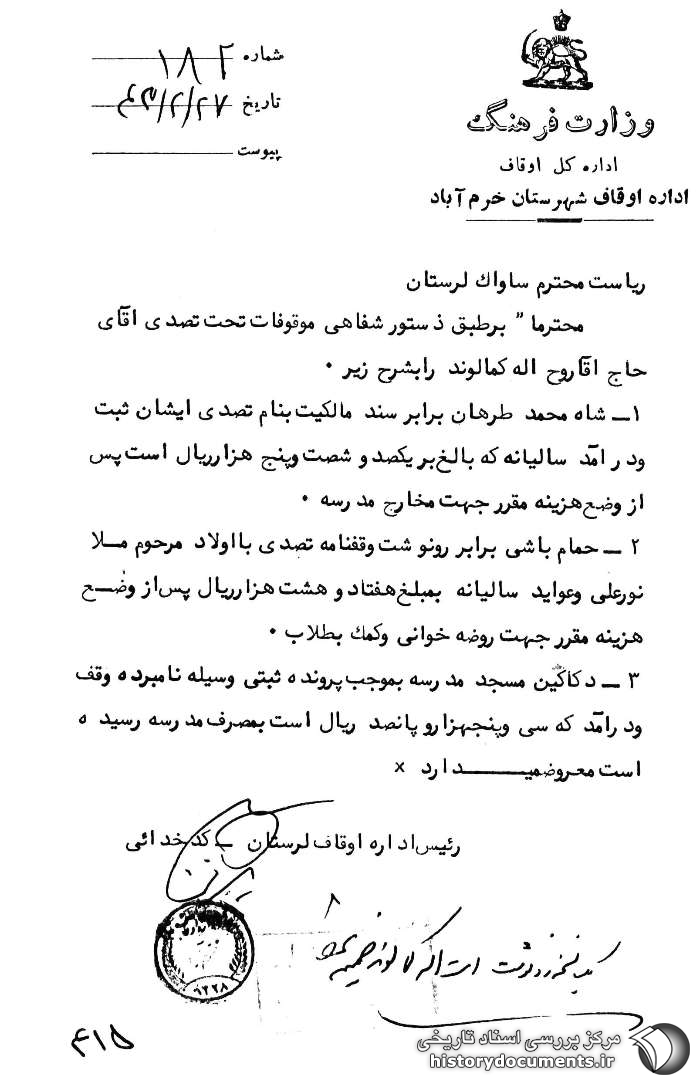 شماره ۱۸۲
تاریخ ۴۳/۲/۲۷
پیوست
وزارت فرهنگ
اداره کل اوقاف
اداره اوقاف شهرستان خرم آباد
ریاست محترم ساواک لرستان
محترما" برطبق دستور شفاهی موقوفات تحت تصدی اقای
حاج اقاروح اله کمالوند رابشرح زیر ۰
۱ــ شاه محمد طرهان برابر سند مالکیت بنام تصدی ایشان ثبت
ودر امد سالیانه که بالغ بر یکصد و شصت وپنج هزار ریال است پس
از وضع هزینه مقرر جهت مخارج مدرسه ۰
۲ ــ حمام باشی برابر رونوشت وقفنامه تصدی با اولاد مرحوم مـلا
نورعلی وعواید سالیانه بمبلغ هفتاد و هشت هزار ریال پس از وضـــع
هزینه مقرر جهت روضه خوانی وکمک بطلاب ۰
۳ ــ دکاکین مسجد مدرسه بموجب پرونده ثبتی وسیله نامبرده وقف
ودرامد که سی وپنجهزار و پانصد ریال است بمصرف مدرسه رسیده
است معروضمیـــــــدارد x
رئیس اداره اوقاف لرستان ــ کدخدائی
۸
۶۲۲۸
۴۱۵
مرکز بررسی اسناد تاریخی
historydocuments.ir